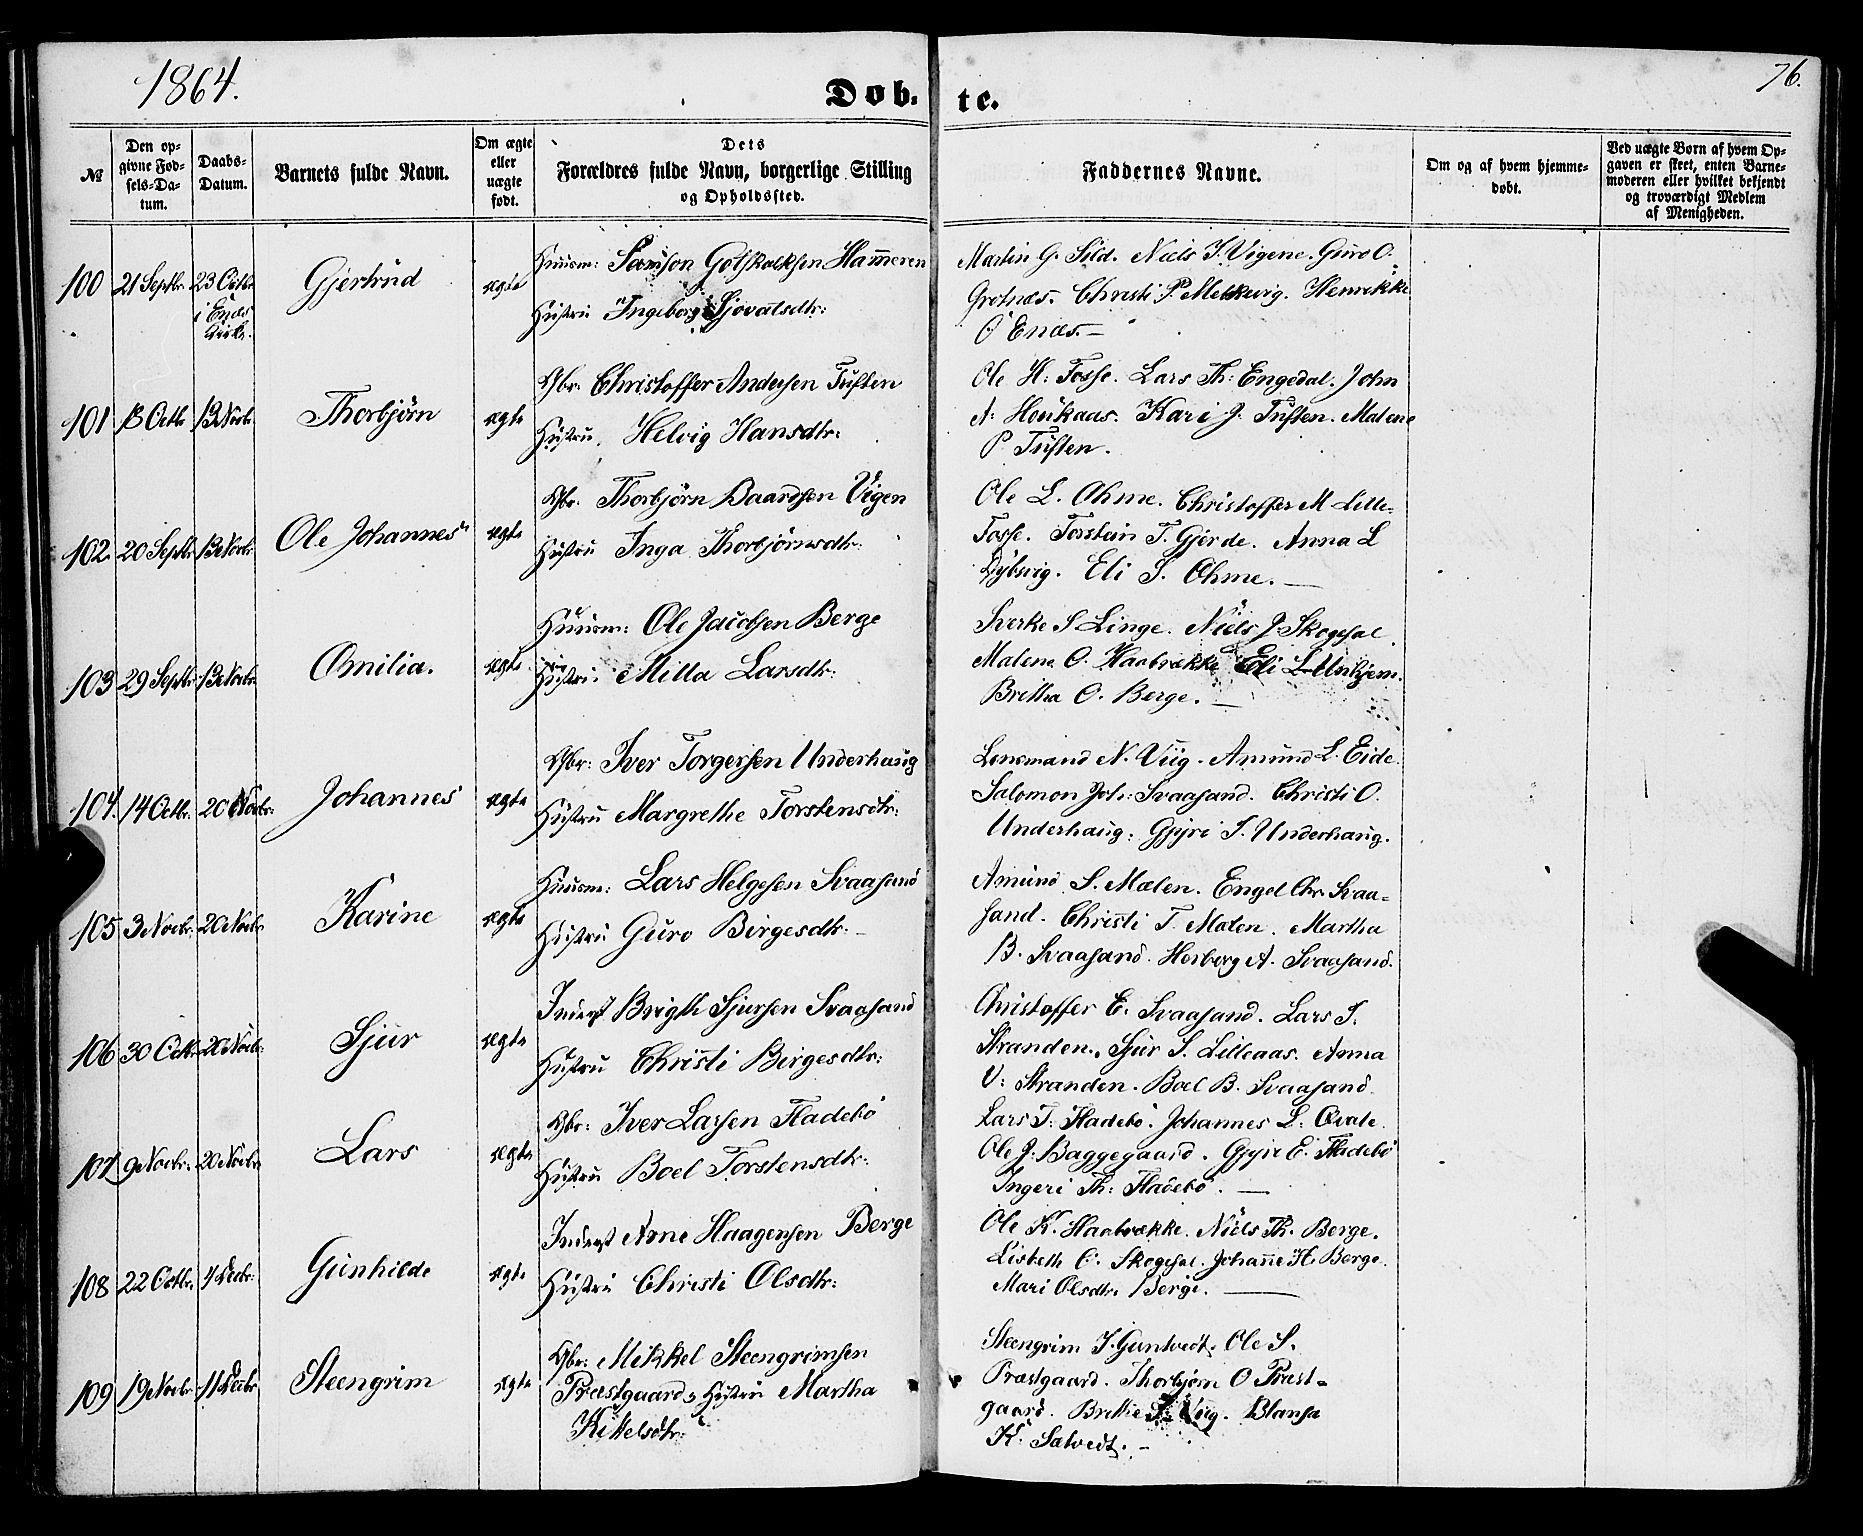 1864.
Døb-
te.
76.
№
Den op-
givne Fød-
sels-Da-
tum.
Daabs-
Datum.
Barnets fulde Navn.
Om ægte
eller
uægte
født.
Dets
Forældres fulde Navn, borgerlige Stilling
og Opholdssted.
Faddernes Navne.
Om og af hvem hjemme-
døbt.
Ved uægte Børn af hvem Op-
gaven er skeet, enten Barne-
moderen eller hvilket bekjendt
og troværdigt Medlem
af Menigheden.
100 21 Septbr. 23 Octbr. i Enæs Kirke. Gjertrud ægte
Huusm: Samson Gotskalksen Hammeren
Hustru Ingeborg Sjovatsdtr:
Martin G. Sild. Niels J. Vigene. Guro O.
Grotnæs. Christi P. Melkevig. Henrikke
O Enæs. —
101 13 Octb 13 Novbr. Thorbjörn ægte
Gbr. Christoffer Andersen Tuften
Hustru, Helvig Hansdtr:
Ole H: Fosse. Lars Th: Engedal. John
A: Houkaas. Kari J. Tuften. Malene
P. Tuften.
102. 20 Septbr. 13 Novbr. Ole Johannes ægte
Gbr. Thorbjörn Baardsen Vigen
Hustru Inga Thorbjörnsdtr:
Ole L. Ohme. Christoffer M Lille-
Fosse. Torstein T. Gjerde. Anna L
Dybsvig. Eli S. Ohme. —
103 29 Septbr. 13 Novbr. Omilia. ægte
Huusm: Ole Jacobsen Berge
Hustru Milla Larsdtr:
Sverke S Linge. Niels J Skogesal
Malena O. Haabrække Eli L Untzjem.
Britha O. Berge. —
104. 14 Octbr. 20 Novbr. Johannes ægte
Gbr: Iver Torgersen Underhaug
Hustru Margrethe Torstensdtr:
Lensmand N. Viig. Amund L. Eide.
Salomon Joh: Svaasand. Christi O.
Underhaug: Gjyri I. Underhaug.
105 3 Novbr. 20 Novbr. Karine ægte
Huusm: Lars Helgesen Svaasand
Hustru Guro Birgesdtr. —
Amund S. Mælen. Engel Chr. Svaa-
sand. Christi T. Mælen. Martha
B. Svaasand. Herborg A. Svaasand.
106 30 Octbr. 20 Novbr. Sjur ægte
Inderst Brigth Sjursen Svaasand
Hustru Christi Birgesdtr:
Christoffer E. Svaasand. Lars I.
Stranden. Sjur S. Lilleaas. Anna
V: Stranden. Boel B. Svaasand
107 9 Novbr. 20 Novbr. Lars ægte
Gbr: Iver Larsen Fladebö
Hustru Boel Torstensdtr:
Lars T: Fladebö. Johannes L: Qvale.
Ole J. Baggegaard. Gjyri E. Fladebö
Ingeri Th: Fladebö. —
108 22 Octbr. 4 Decbr: Gunhilde ægte
Inderst Arne Haagensen Berge
Hustru Christi Olsdtr:
Ole K. Haabrække. Niels Th. Berge.
Lisbeth O. Skogesal. Johanne H. Berge.
Mari Olsdtr. Berge. —
109 19 Novbr. 11 Decbr. Steengrim ægte
Gbr: Mikkel Steengrimsen
Præstgaard & Hustru Martha
Kikelsdtr:
Steengrim J. Guntvedt. Ole S.
Præstgaard. Thorbjørn O Præst-
gaard. Brithe Viig. Blansa
K: Salvedt. —